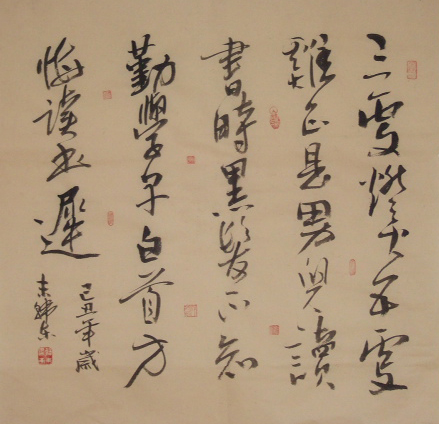 三更燈火五更
雞正是男兒讀
書時黑髮不知
勤學早白首方
悔读书遲
己丑年歲
东